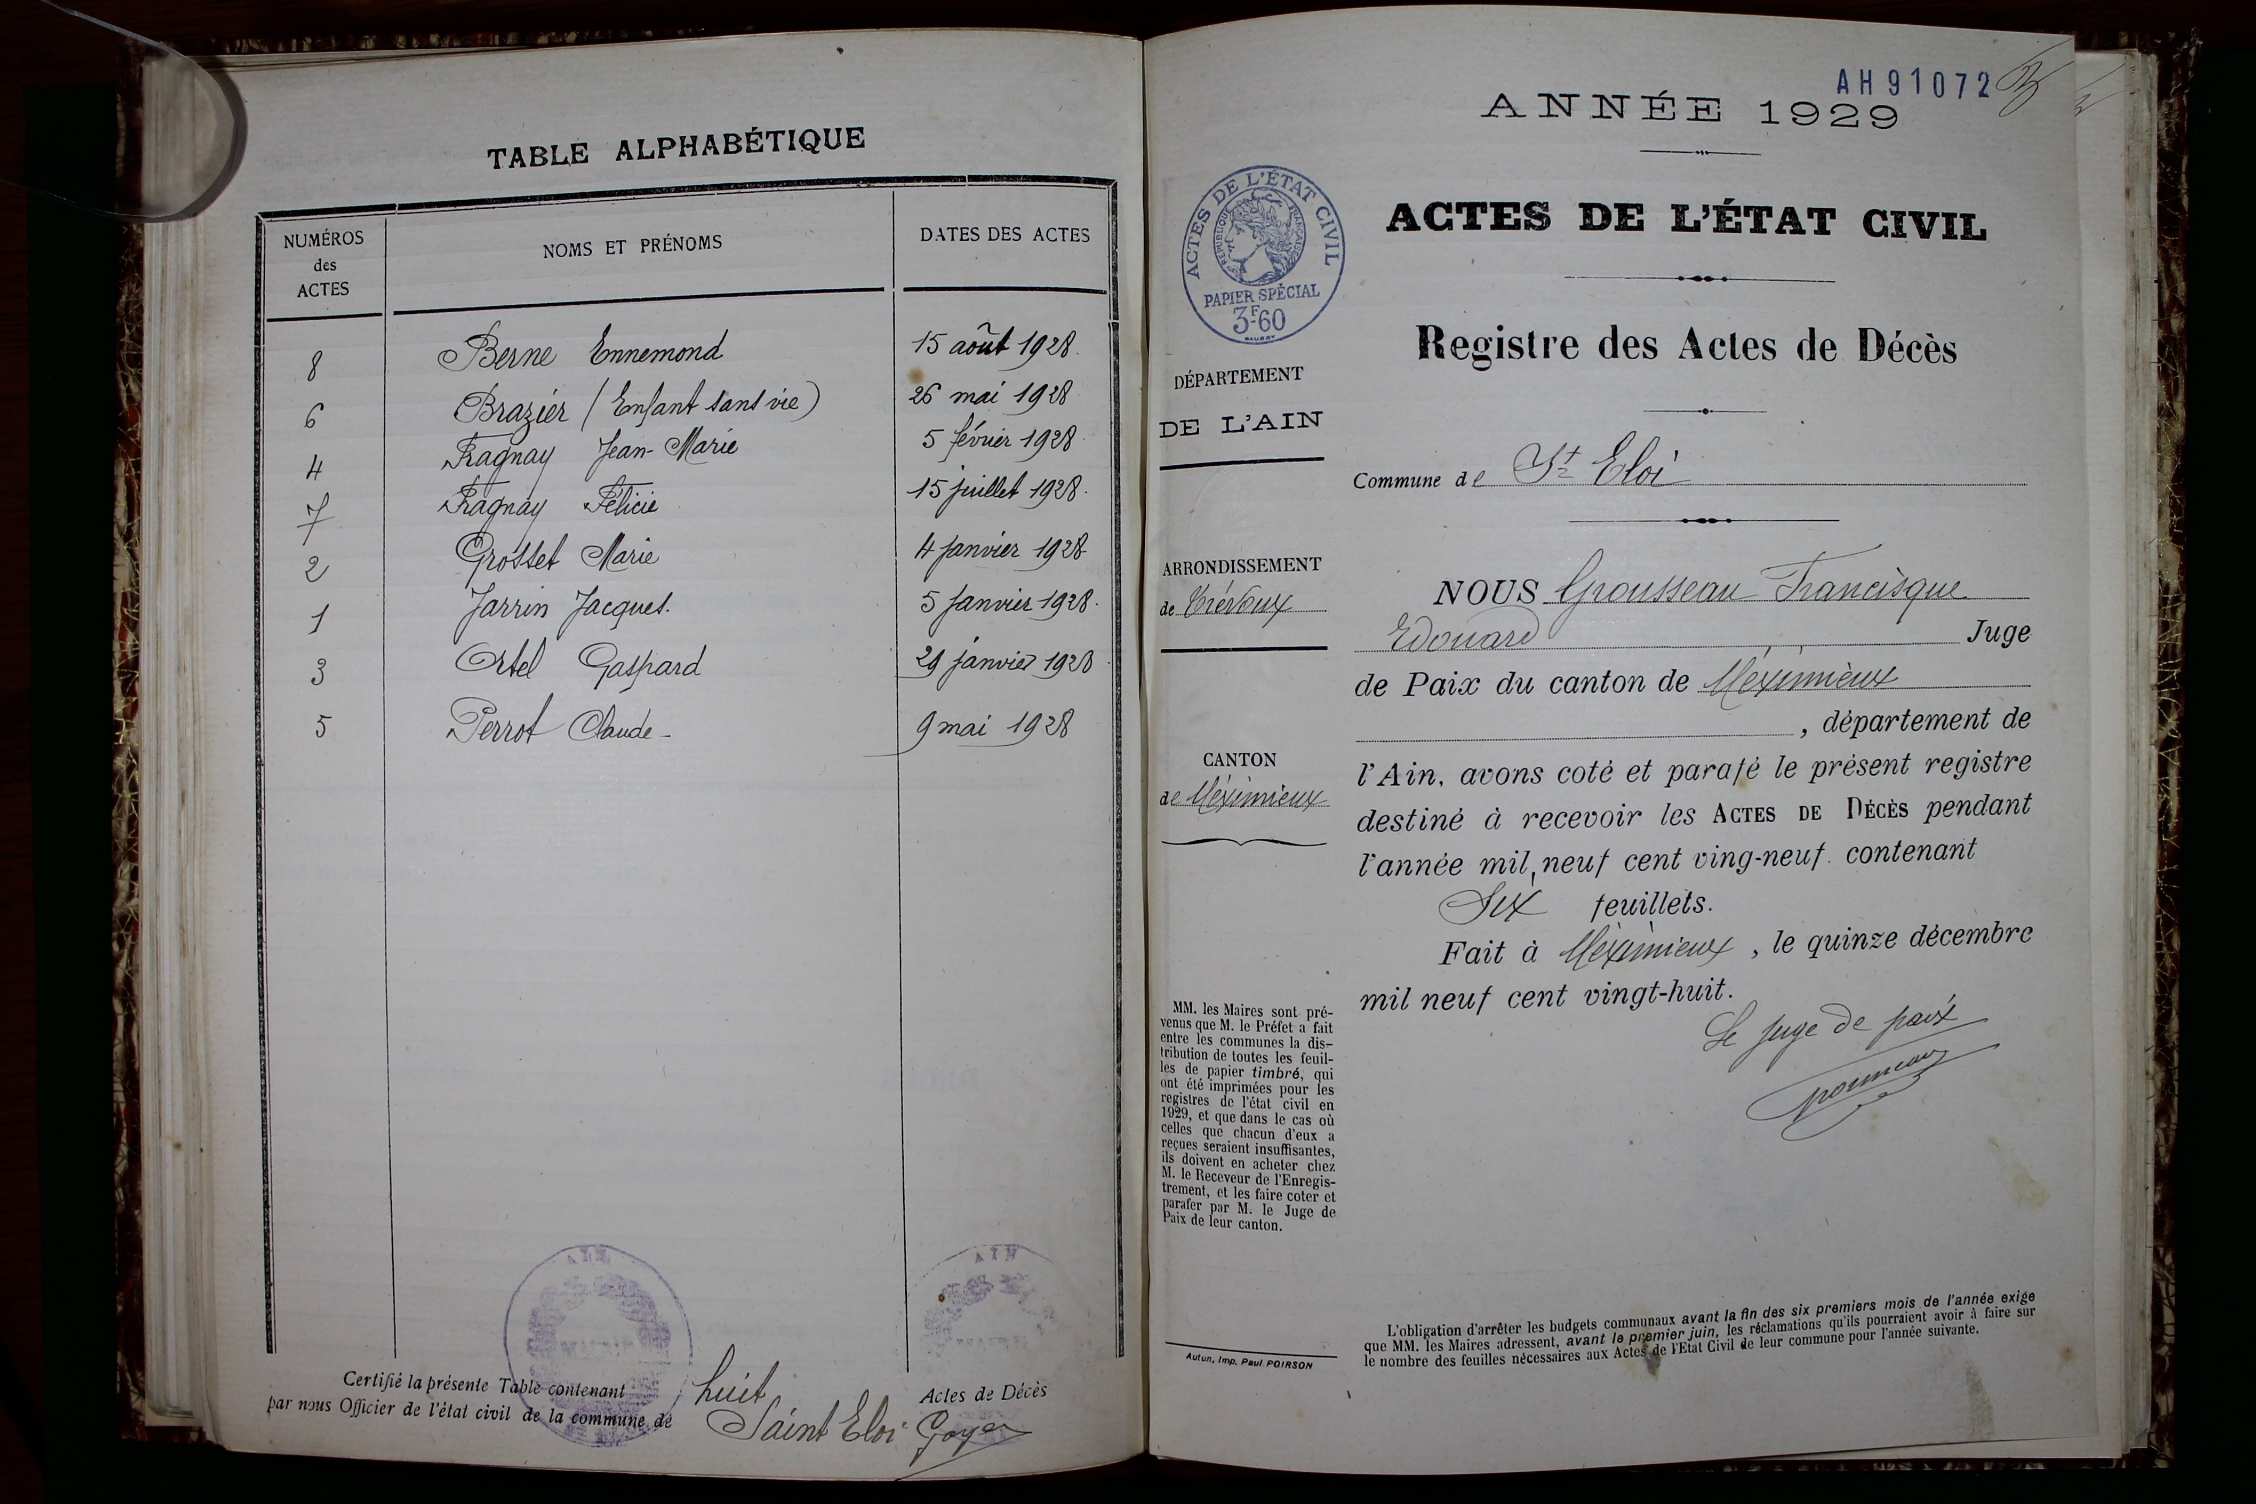 TABLE ALPHABÉTIQUE
NUMÉROS
des
ACTES
NOMS ET PRÉNOMS
DATES DES ACTES
8 Berne Ennemond 15 aôut 1928.
6 Brazier (Enfant sans vie) 26 mai 1928
4 Fragnay Jean-Marie 5 février 1928
7 Fragnay Félicie 15 juillet 1928.
2 Grosset Marie 4 janvier 1928
1 Jarrin Jacques. 5 janvier 1928.
3 Ortel Gaspard 29 janvier 1928
5 Perrot Claude 9 mai 1928
AIN
MAIRIE
AIN
Certifié la présente Table contenant huit Actes de Décès
par nous Officier de l'état civil de la commune de Saint Eloi
AH91072
ANNÉE 1929
ACTES DE L'ÉTAT CIVIL
RÉPUBLIQUE FRANÇAISE
PAPIER SPÉCIAL
3F60
ACTES DE L'ÉTAT CIVIL
Registre des Actes de Décès
DÉPARTEMENT
DE L'AIN
Commune de St Eloi
ARRONDISSEMENT
de Trévoux
CANTON
de Méximieux
NOUS Grousseau Francisque
Edouard Juge
de Paix du canton de Méximieux
, département de
l'Ain, avons coté et parafé le présent registre
destiné à recevoir les ACTES DE DÉCÈS pendant
l'année mil neuf cent ving-neuf. contenant
Six feuillets.
Fait à Méximieux, le quinze décembre
mil neuf cent vingt-huit.
Le juge de paix
MM. les Maires sont pré-
venus que M. le Préfet a fait
entre les communes la dis-
tribution de toutes les feuil-
les de papier timbré, qui
ont été imprimées pour les
registres de l'état civil en
1929, et que dans le cas où
celles que chacun d'eux a
reçues seraient insuffisantes,
ils doivent en acheter chez
M. le Receveur de l'Enregis-
trement, et les faire coter et
parafer par M. le Juge de
Paix de leur canton.
Autun, Imp. Paul POIRSON
L'obligation d'arrêter les budgets communaux avant la fin des six premiers mois de l'année exige
que MM. les Maires adressent, avant le premier juin, les réclamations qu'ils pourraient avoir à faire sur
le nombre des feuilles nécessaires aux Actes de l'Etat Civil de leur commune pour l'année suivante.